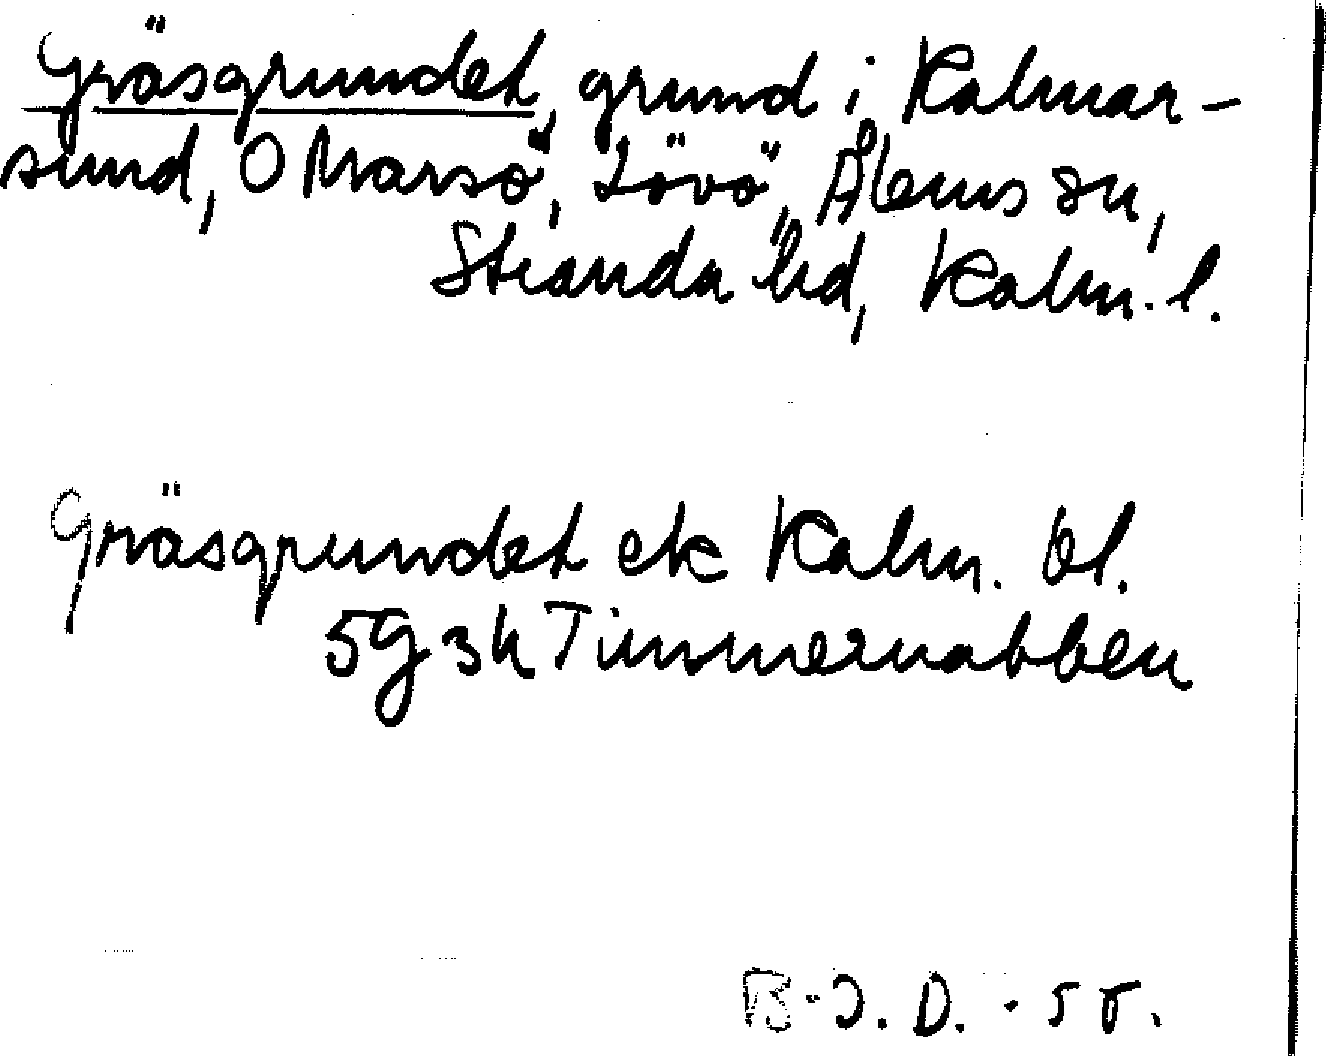 Gräsgrundet, grund i Kalmar-
sund, O Marsö, Lövö, Ålems sn,
Stranda hd, Kalm. l.
Gräsgrundet ek Kalm. bl.
5G 3h Timmernabben
B-J.D. -55.